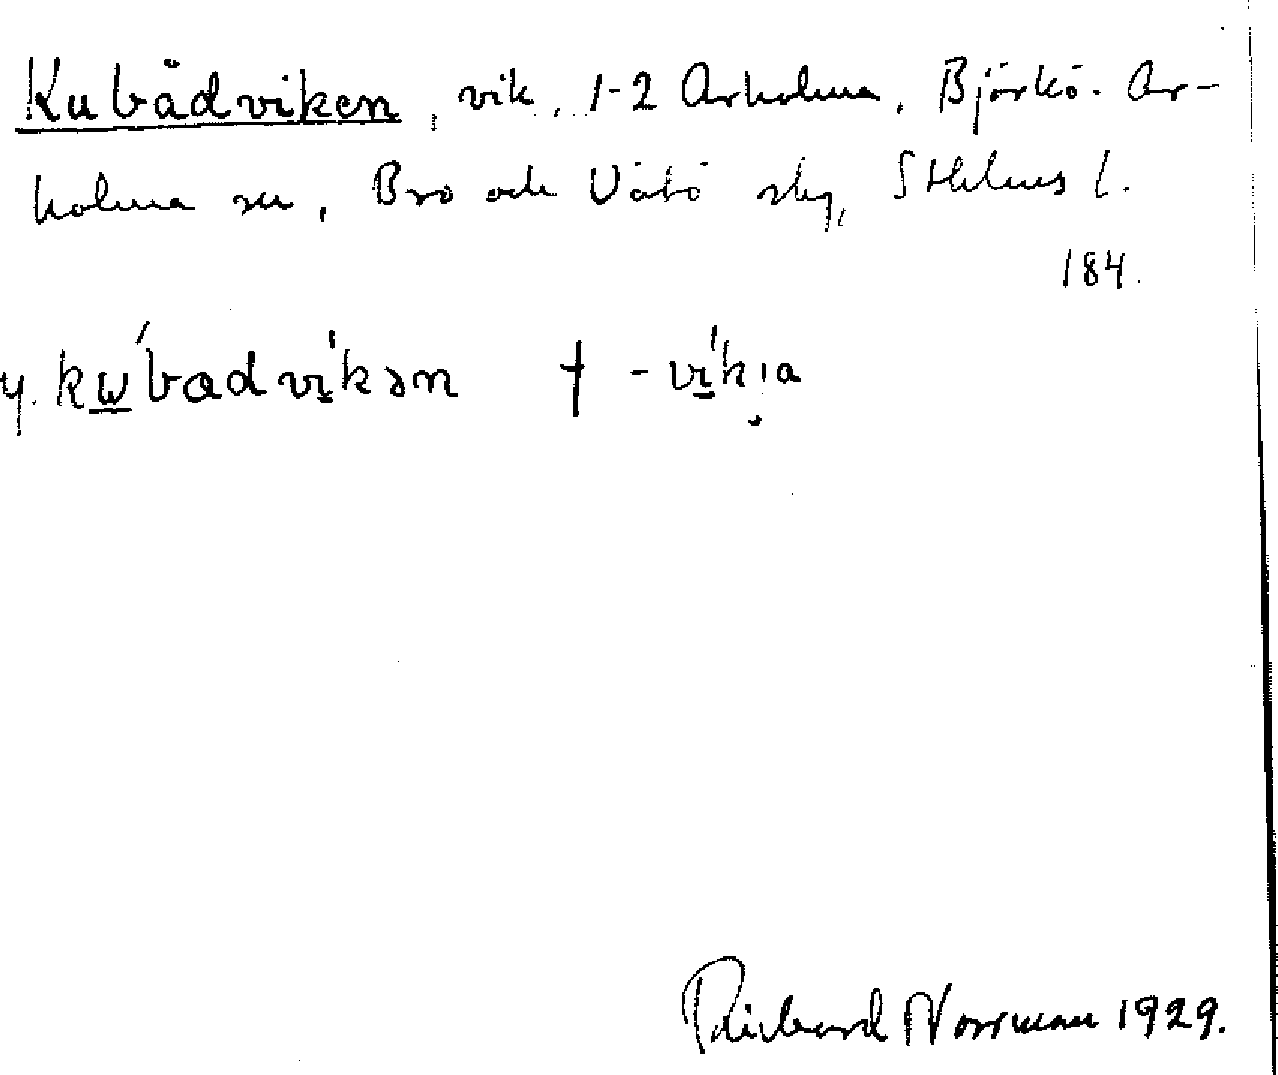 Kubådviken, vik, 1-2 Arholma, Björkö-Ar-
holma sn, Bro och Vätö skg, Sthlms l.
184.
y. kẃ̲badvi̲̍kən † -vi̲̍kı̣a
Richard Norrman 1929.